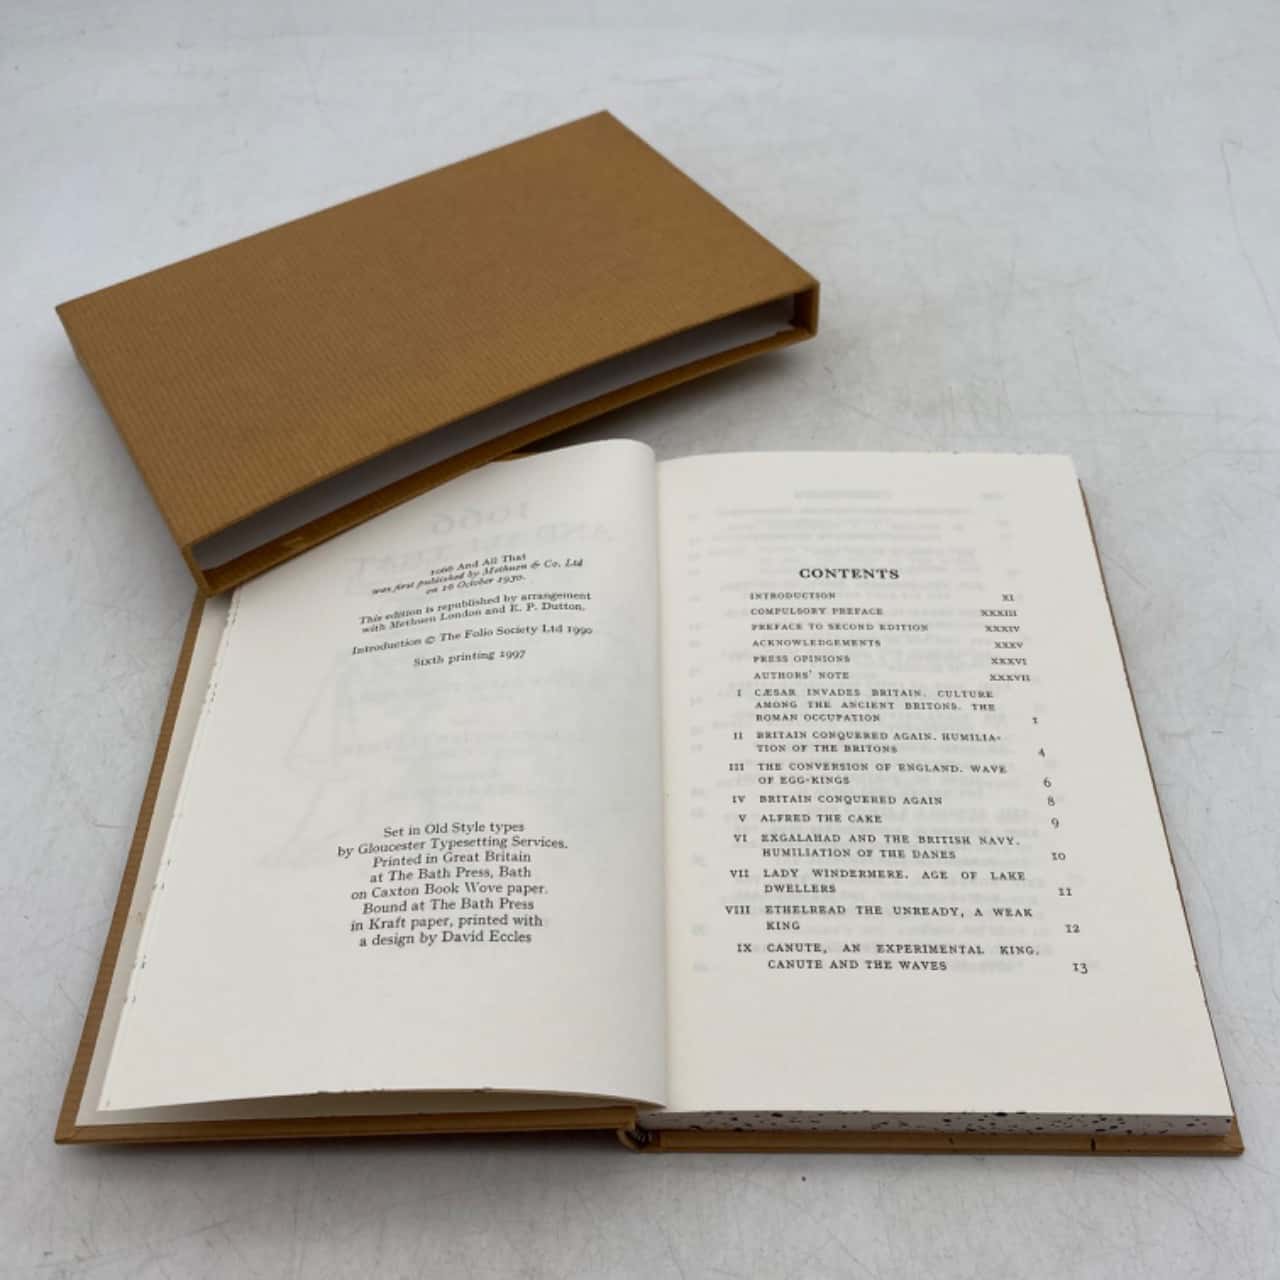 1066 And All That
was first published by Methuen & Co. Ltd
on 16 October 1930.
This edition is republished by arrangement
with Methuen London and E. P. Dutton.
Introduction © The Folio Society Ltd 1990
Sixth printing 1997
Set in Old Style types
by Gloucester Typesetting Services.
Printed in Great Britain
at The Bath Press, Bath
on Caxton Book Wove paper.
Bound at The Bath Press
in Kraft paper, printed with
a design by David Eccles
CONTENTS
INTRODUCTION XI
COMPULSORY PREFACE XXXIII
PREFACE TO SECOND EDITION XXXIV
ACKNOWLEDGEMENTS XXXV
PRESS OPINIONS XXXVI
AUTHORS' NOTE XXXVII
I CÆSAR INVADES BRITAIN. CULTURE
AMONG THE ANCIENT BRITONS. THE
ROMAN OCCUPATION 1
II BRITAIN CONQUERED AGAIN. HUMILIA-
TION OF THE BRITONS 4
III THE CONVERSION OF ENGLAND. WAVE
OF EGG-KINGS 6
IV BRITAIN CONQUERED AGAIN 8
V ALFRED THE CAKE 9
VI EXGALAHAD AND THE BRITISH NAVY.
HUMILIATION OF THE DANES 10
VII LADY WINDERMERE. AGE OF LAKE
DWELLERS 11
VIII ETHELREAD THE UNREADY, A WEAK
KING 12
IX CANUTE, AN EXPERIMENTAL KING.
CANUTE AND THE WAVES 13